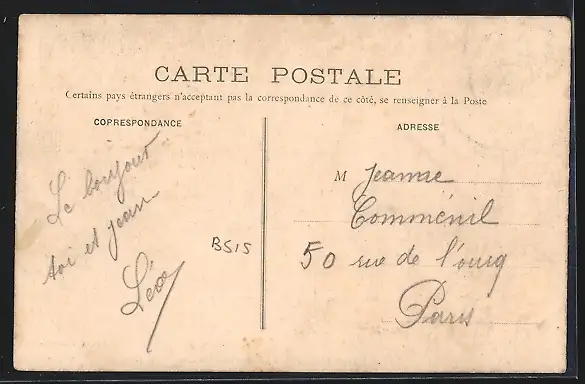 CARTE POSTALE
Certains pays étrangers n'acceptant pas la correspondance de ce côté, se renseigner à la Poste
CORRESPONDANCE
ADRESSE
Le bonjour
toi et jean
Léo
BS15
M Jeanne
Comménil
50 rue de l'ourq
Paris